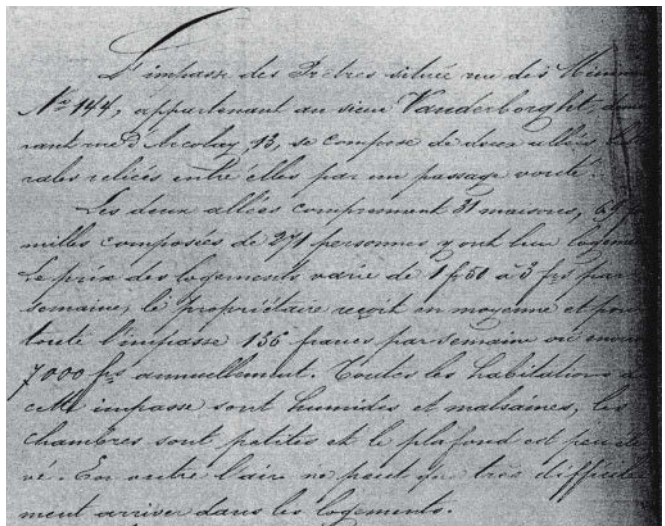 L'impasse des Prêtres située rue des Minimes
N° 144, appartenant au sieur Vanderborght, demeu
rant rue d'Accolay, 13, se compose de deux allées laté
rales reliées entre elles par un passage vouté.
Les deux allées comprennent 31 maisons,
milles composées de 271 personnes y ont leur logement
Le prix des logements varie de 1 f 50 à 3 frs par
semaine, le propriétaire reçoit en moyenne et pour
toute l'impasse 136 francs par semaine ou environ
7000 frs annuellement. Toutes les habitations de
cette impasse sont humides et malsaines, les
chambres sont petites et le plafond est peu éle
vé. En outre l'air ne peut que très difficile
ment arriver dans les logements.